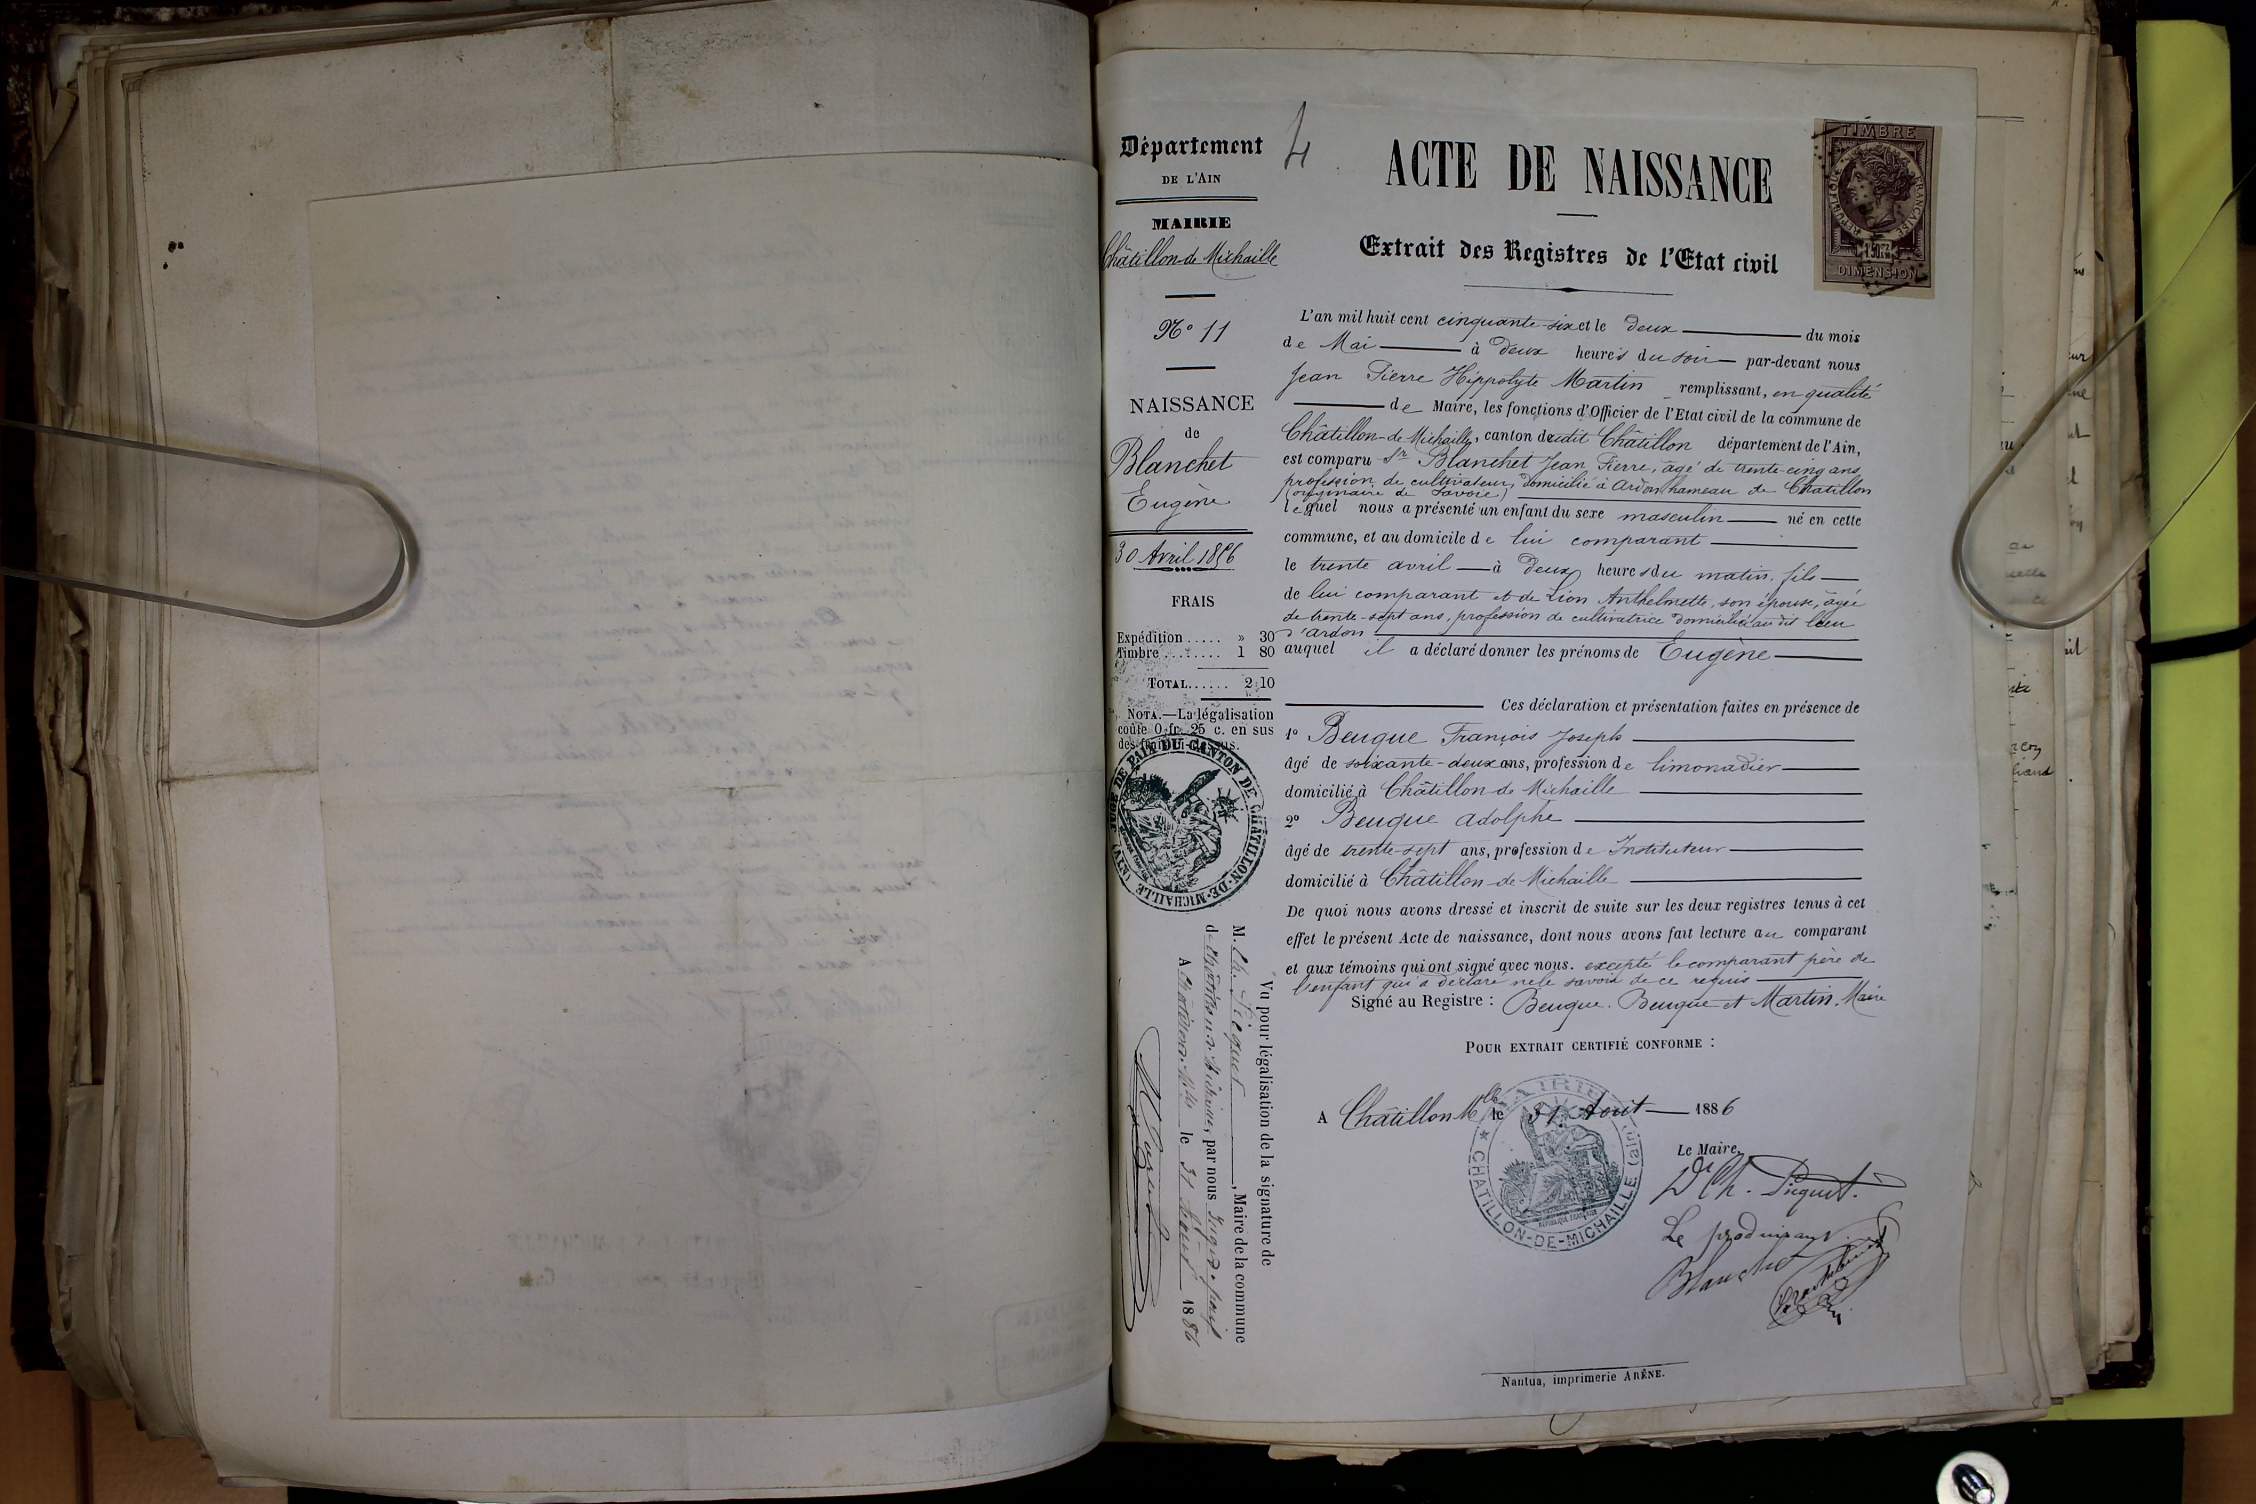 4
Département
DE L'AIN
MAIRIE
Châtillon-de Michaille
N° 11
NAISSANCE
de
Blanchet
Eugène
30 Avril 1856
FRAIS
Expédition ..... » 30
Timbre ........ 1 80
TOTAL...... 2 10
NOTA.—La légalisation
coûte 0 fr. 25 c. en sus
JUGE DE PAIX DU CANTON DE CHATILLON-DE-MICHAILLE (AIN)
Vu pour légalisation de la signature de
M. Ch. Picquet, Maire de la commune
de Châtillon-de Michaille, par nous Juge de paix
A Châtillon-Mlle le 31 Août 1886
ACTE DE NAISSANCE
Extrait des Registres de l'Etat civil
TIMBRE
REPUBLIQUE FRANÇAISE
DIMENSION
L'an mil huit cent cinquante-six et le deux du mois
de Mai à deux heures du soir par-devant nous
Jean Pierre Hippolyte Martin remplissant, en qualité
de Maire, les fonctions d'Officier de l'Etat civil de la commune de
Châtillon-de Michaille, canton dudit Châtillon département de l'Ain,
est comparu Sr Blanchet Jean Pierre, âgé de trente-cinq ans,
profession de cultivateur, domicilié à Ardon hameau de Chatillon
(originaire de Savoie)
lequel nous a présenté un enfant du sexe masculin né en cette
commune, et au domicile de lui comparant
le trente avril à deux heures du matin, fils
de lui comparant et de Lion Anthelmette, son épouse, âgée
de trente-sept ans, profession de cultivatrice domiciliée au dit lieu
d'Ardon
auquel il a déclaré donner les prénoms de Eugène
Ces déclaration et présentation faites en présence de
1° Beuque François Joseph
âgé de soixante-deux ans, profession de limonadier
domicilié à Châtillon de Michaille
2° Beuque Adolphe
âgé de trente-sept ans, profession de Instituteur
domicilié à Châtillon-de Michaille
De quoi nous avons dressé et inscrit de suite sur les deux registres tenus à cet
effet le présent Acte de naissance, dont nous avons fait lecture au comparant
et aux témoins qui ont signé avec nous. excepté le comparant père de
l'enfant qui a déclaré ne le savoir de ce requis
Signé au Registre : Beuque. Beuque et Martin. Maire
POUR EXTRAIT CERTIFIÉ CONFORME :
A Châtillon Mlle le 31 Août 1886
MAIRIE
CHATILLON-DE-MICHAILLE (Ain)
Le Maire,
Dr Ch. Picquet.
Le produisant
Blanchet
Nantua, imprimerie ARÈNE.